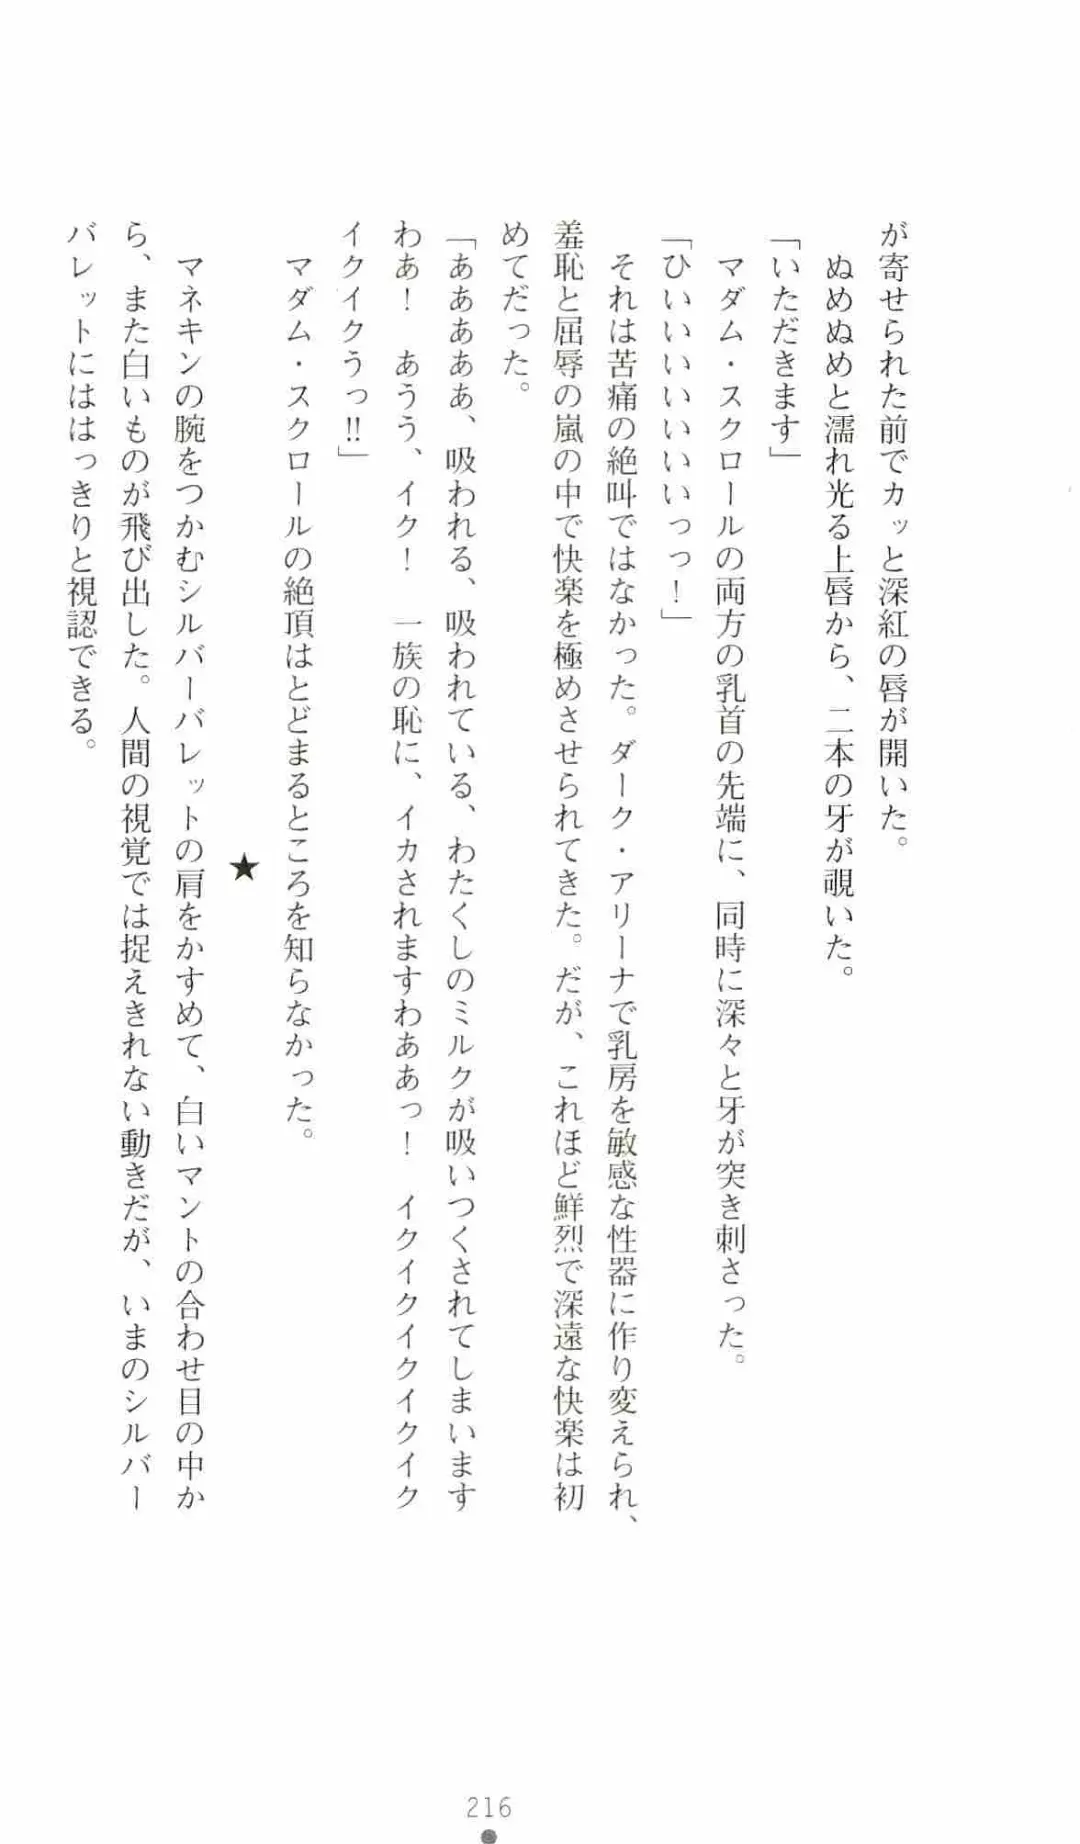 が寄せられた前でカッと深紅の唇が開いた。
　ぬめぬめと濡れ光る上唇から、二本の牙が覗いた。
「いただきます」
　マダム・スクロールの両方の乳首の先端に、同時に深々と牙が突き刺さった。
「ひいいいいいいいっっ！」
　それは苦痛の絶叫ではなかった。ダーク・アリーナで乳房を敏感な性器に作り変えられ、
羞恥と屈辱の嵐の中で快楽を極めさせられてきた。だが、これほど鮮烈で深遠な快楽は初
めてだった。
「ああああぁ、吸われる、吸われている、わたくしのミルクが吸いつくされてしまいます
わぁ！　あうう、イク！　一族の恥に、イカされますわああっ！　イクイクイクイクイク
イクイクうっ!!」
　マダム・スクロールの絶頂はとどまるところを知らなかった。
★
　マネキンの腕をつかむシルバーバレットの肩をかすめて、白いマントの合わせ目の中か
ら、また白いものが飛び出した。人間の視覚では捉えきれない動きだが、いまのシルバー
バレットにははっきりと視認できる。
216